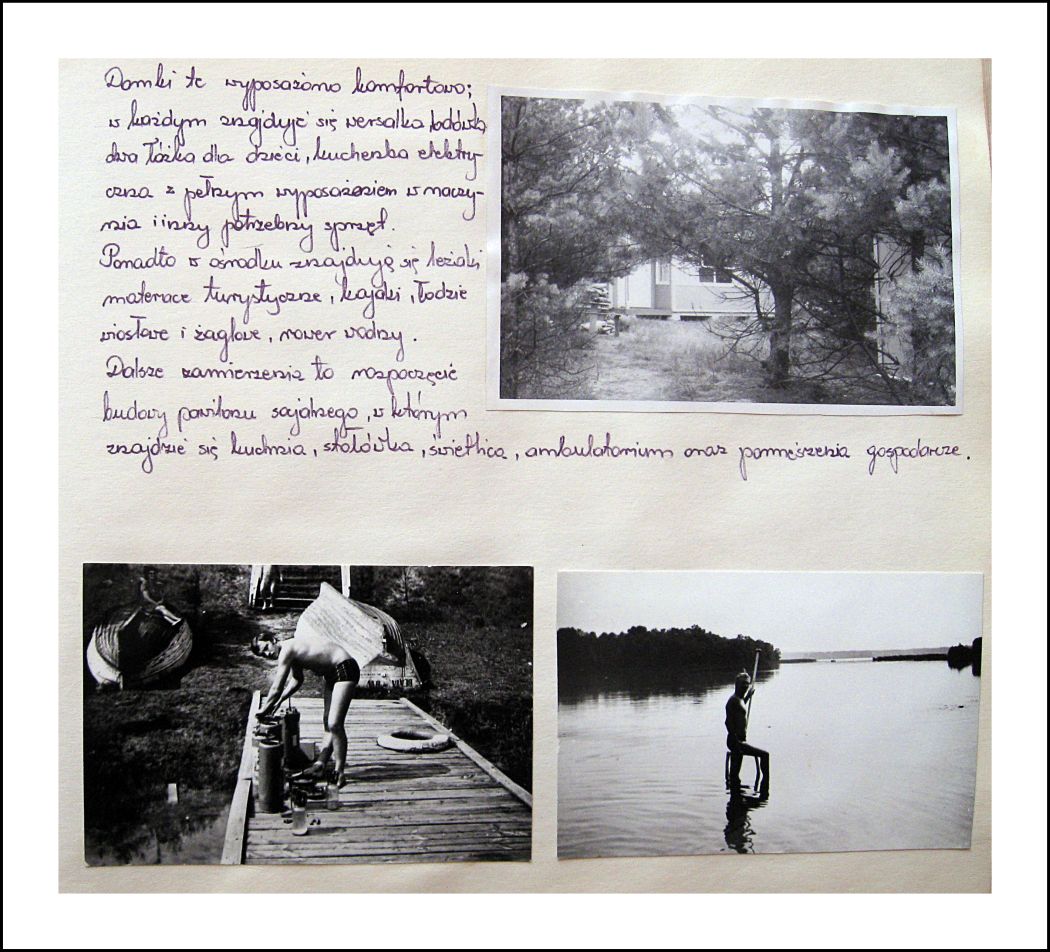 Domki te wyposażono komfortowo;
w każdym znajduje się wersalka, lodówka
dwa łóżka dla dzieci, kuchenka elektry-
czna z pełnym wyposażeniem w naczy-
nia i inny potrzebny sprzęt.
Ponadto w ośrodku znajdują się leżaki
materace turystyczne, kajaki, łodzie
wiosłowe i żaglowe, rower wodny.
Dalsze zamierzenia to rozpoczęcie
budowy pawilonu socjalnego, w którym
znajdzie się kuchnia, stołówka, świetlica, ambulatorium oraz pomieszczenia gospodarcze.